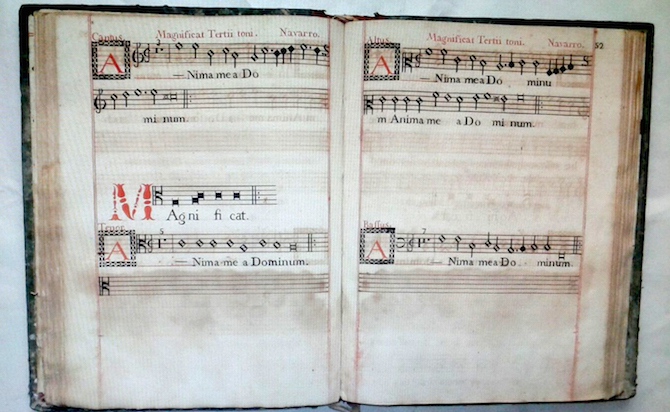 Cantus. Magnificat Tertii toni. Navarro.
A Nima mea Do
mi num.
M Agni fi cat.
Tenor.
5
A Nima me a Dominum.
Altus. Magnificat Tertii toni. Navarro. 52
A Nima mea Do minu
m Anima me a Do mi num.
Bassus.
7
A Nima mea Do minum.